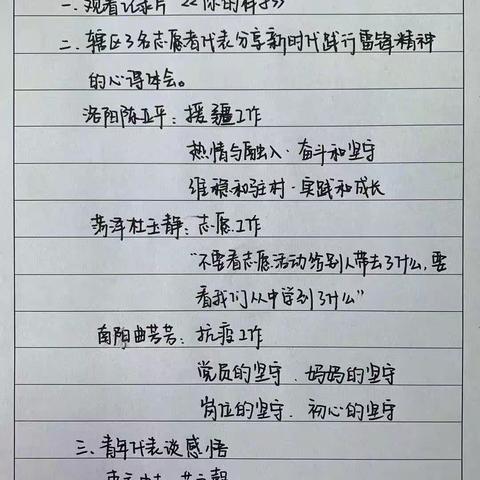 一、观看记录片《你的样子》
二、辖区3名志愿者代表分享新时代践行雷锋精神
的心得体会。
洛阳陈亚平：援疆工作
热情与融入·奋斗和坚守
维稳和驻村·实践和成长
菏泽杜玉静：志愿工作
“不要看志愿活动给别人带去了什么，要
看我们从中学到了什么”
南阳曲芳芳：抗疫工作
党员的坚守、妈妈的坚守
岗位的坚守、初心的坚守
三、青年代表谈感悟